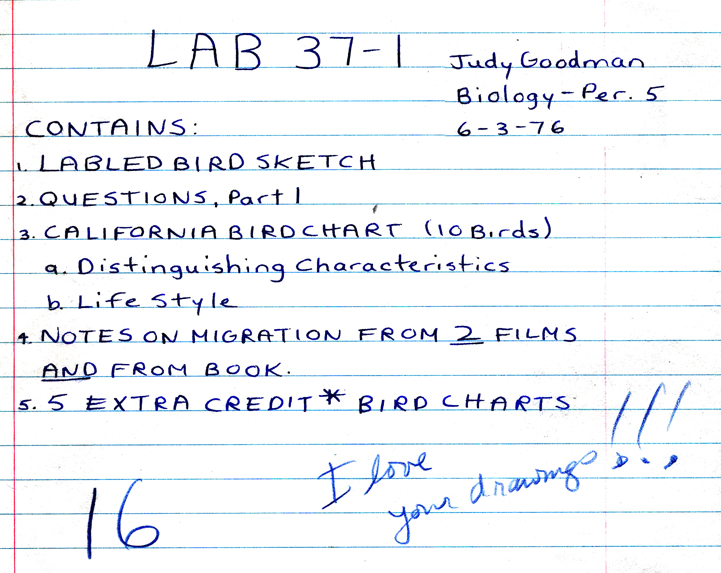 LAB 37-1
Judy Goodman
Biology - Per. 5
6-3-76
CONTAINS:
1. LABLED BIRD SKETCH
2. QUESTIONS, Part 1
3. CALIFORNIA BIRD CHART (10 Birds)
a. Distinguishing Characteristics
b. Life Style
4. NOTES ON MIGRATION FROM 2 FILMS
AND FROM BOOK.
5. 5 EXTRA CREDIT * BIRD CHARTS
I love
your drawings!!!
16